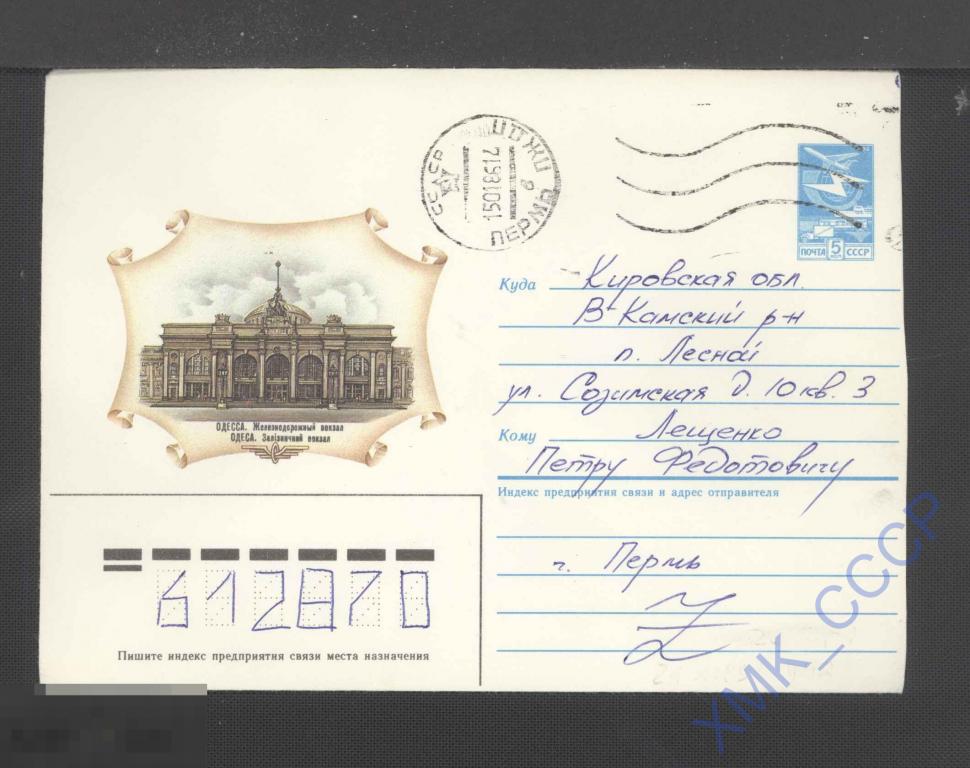 СССР
ПОЖЦ
15018614
в
ПЕРМЬ
ПОЧТА 5 КОП СССР
Куда Кировская обл.
В-Камский р-н
п. Лесной
ул. Созимская д. 10 кв. 3
Кому Лещенко
Петру Федотовичу
Индекс предприятия связи и адрес отправителя
г. Пермь
ОДЕССА. Железнодорожный вокзал
ОДЕСА. Залізничний вокзал
612870
Пишите индекс предприятия связи места назначения
ХМК_СССР